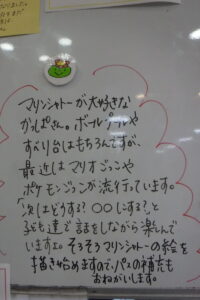 マリンシャトーが大好きな
がっぱさん。ボールプールや
すべり台はもちろんですが、
最近はマリオごっこや
ポケモンごっこが流行っています。
「次はどうする？〇〇にする？」と
子ども達で話をしながら楽しんで
います。そろそろマリンシャトーの絵を
描き始めますので、パスの補充も
おねがいします。